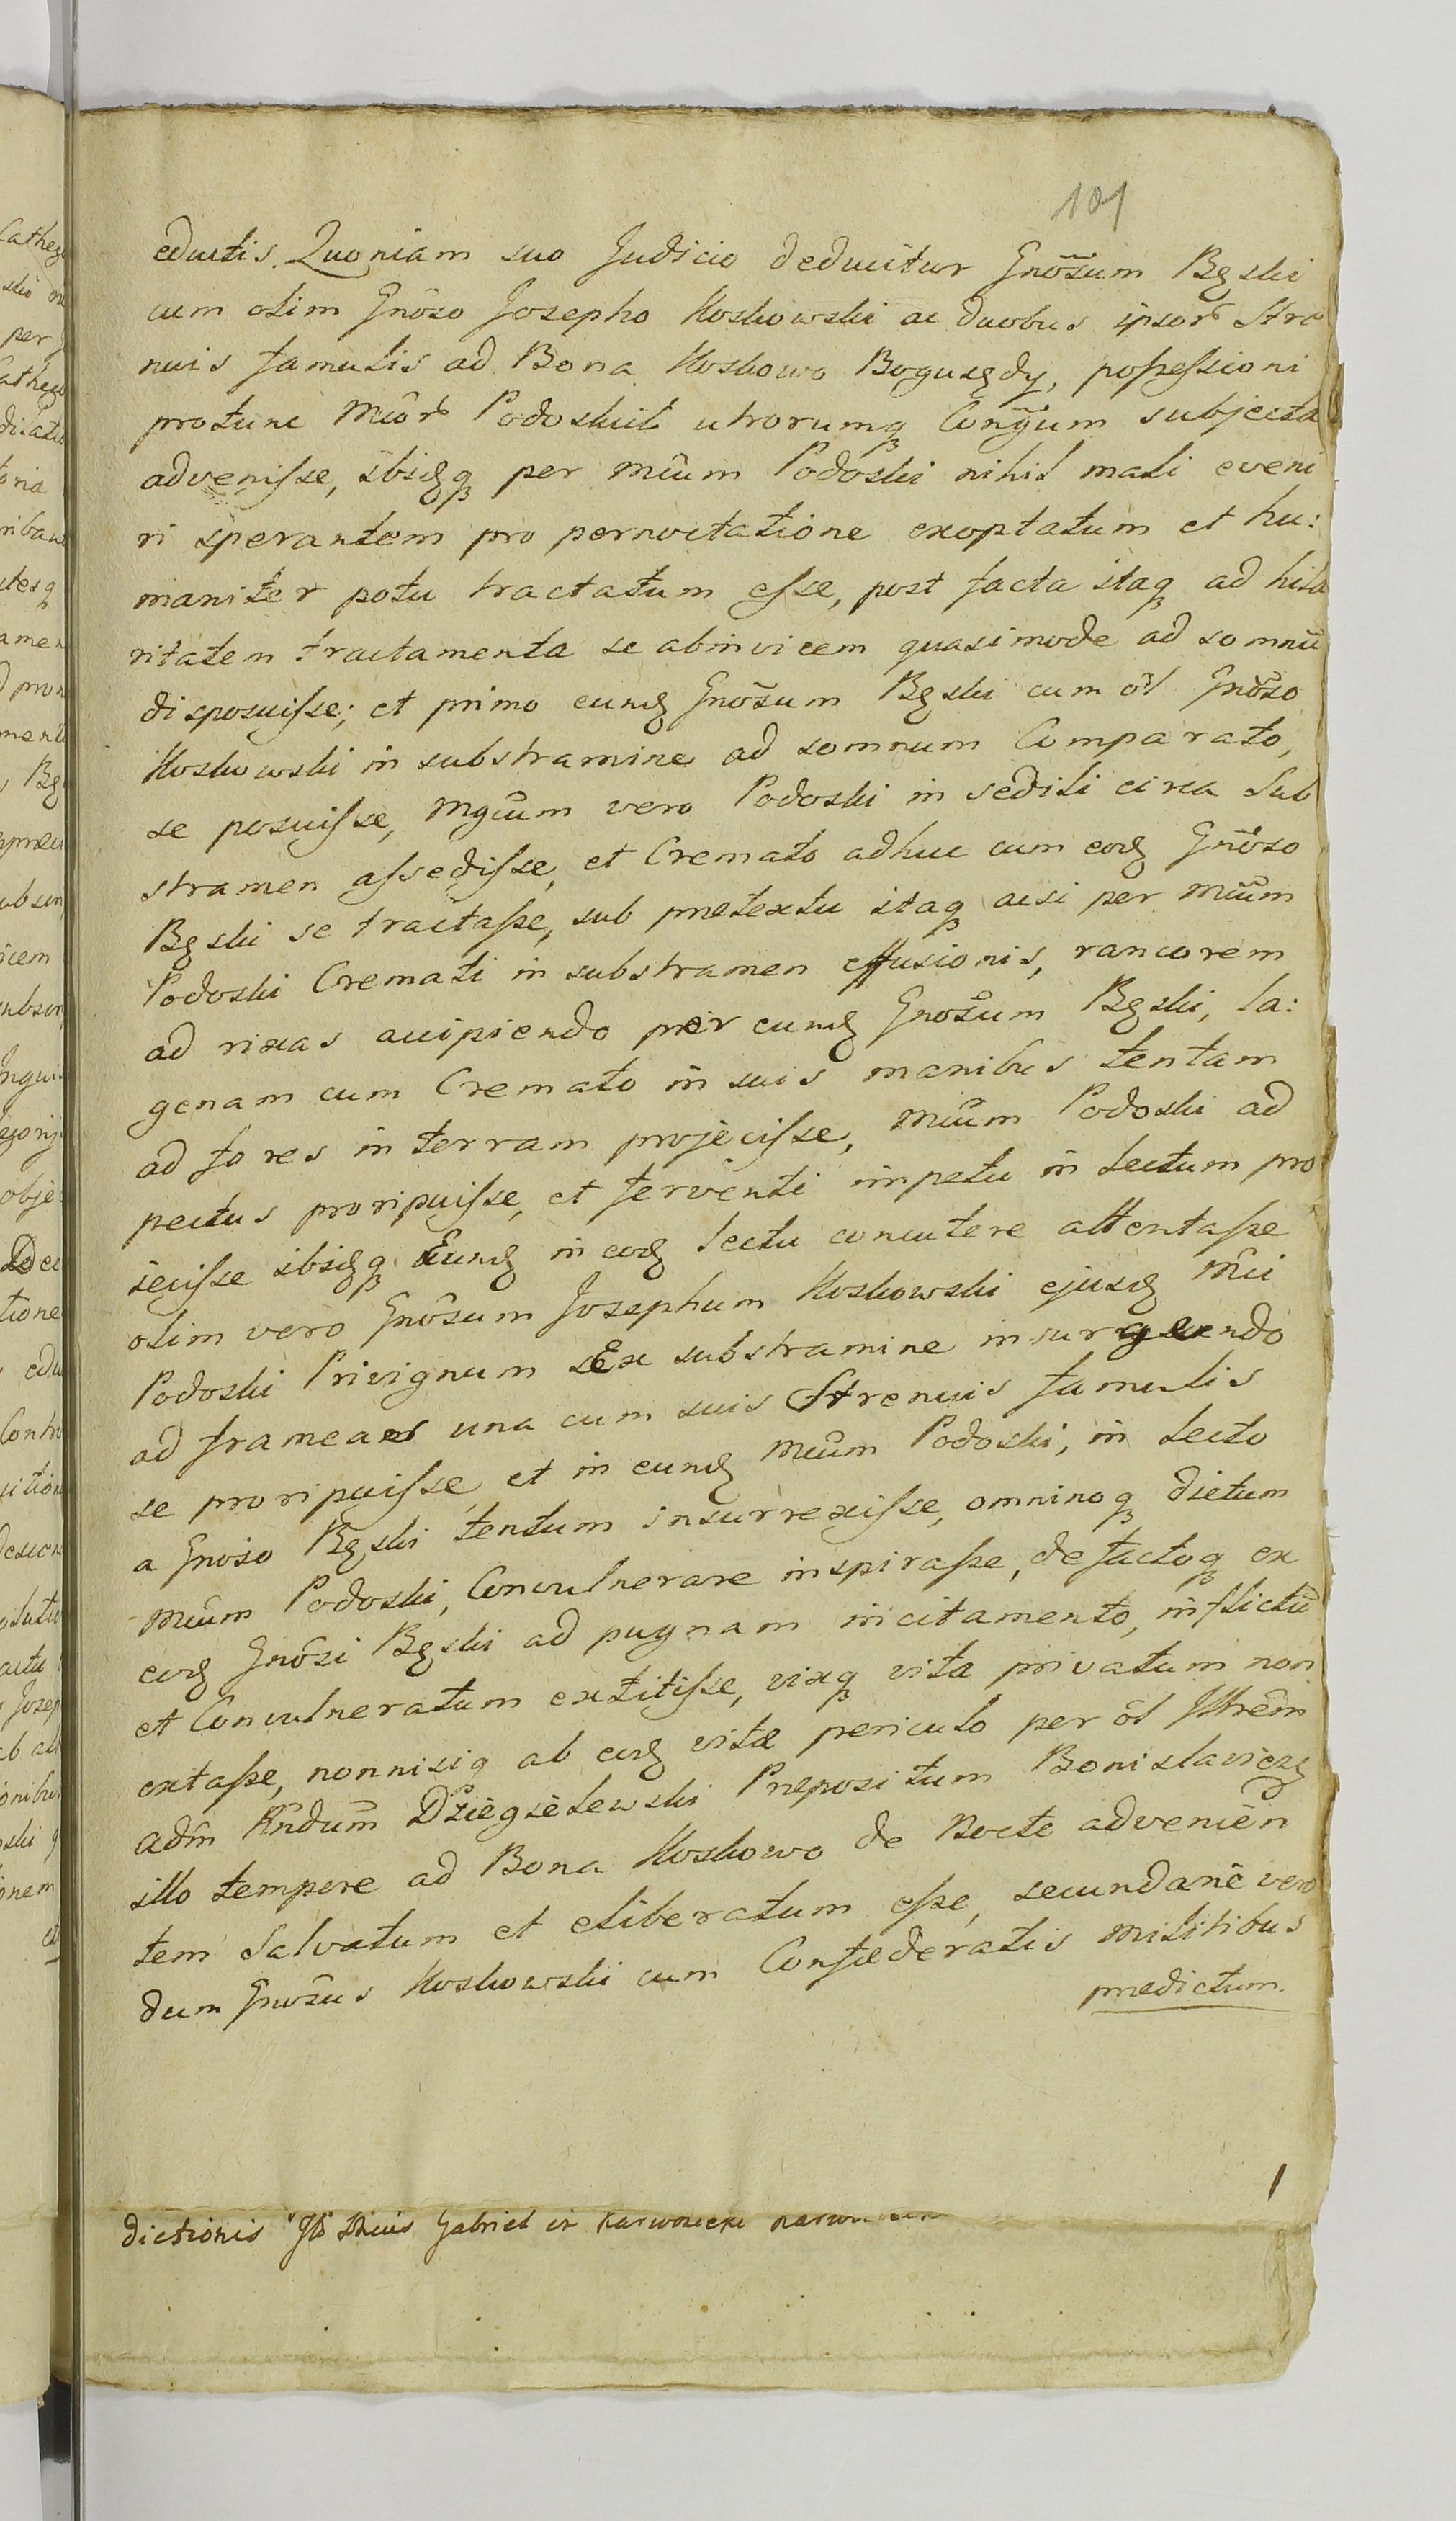 101
eductis. Quoniam suo Judicio deducitur Gnõsum Bęski
cum olim Gnõso Josepho Koskowski ac duobus ipsor Stre
nuis famulis ad Bona Koskowo Bogusędy, possessioni
protunc Mcor Podoskich utrorumq Conjgum subjecta
advenisse, ibidq per Mcum Podoski nihil mali eveni
ri sperantem pro pernoctatione exoptatum et hu:
maniter potu tractatum esse, post facta itaq ad hila
ritatem tractamenta se abinvicem quasimode ad somnũ
disposuisse; et primo eund Gnõsum Bęski cum ol Gnõso
Koskowski in substramine ad somnum Comparato,
se posuisse, Mgcum vero Podoski in sedili circa Sub
stramen assedisse, et Cremato adhuc cum eod Gnõso
Bęski se tractasse, sub prætextu itaq acsi per Mcum
Podoski Cremati in substramen effusionis, rancorem
ad rixas accipiendo per eund Gnosum Bęski, la:
genam cum Cremato in suis manibus tentam
ad fores in terram projecisse, Mcum Podoski ad
pectus proripuisse, et ferventi impetu in lectum pro
jecisse ibidq Eund in eod lectu concutere attentasse
olim vero Gnõsum Josephum Koskowski ejusd Mci
Podoski Privignum Ex substramine insurgendo
ad frameas una cum suis Strenuis famulis
se proripuisse et in eund Mcum Podoski, in lecto
a Gnoso Bęski tentum insurrexisse, omninoq dictum
Mcum Podoski, Convulnerare inspirasse, de factoq ex
eod Gnõsi Bęski ad pugnam incitamento, inflictũ
et Convulneratum extitisse, vixq vita privatum non
extasse, nonnisiq ab eod vitæ periculo per ol Illrem
adm Rndum Dzięgielewski Præpositum Bonislavicz
illo tempore ad Bona Koskowo de Nocte advenien
tem Salvatum et eliberatum esse, secundarie vero
dum Gnõsus Koskowski cum Confæderatis Militibus
prædictum.
dictionis Gabriel